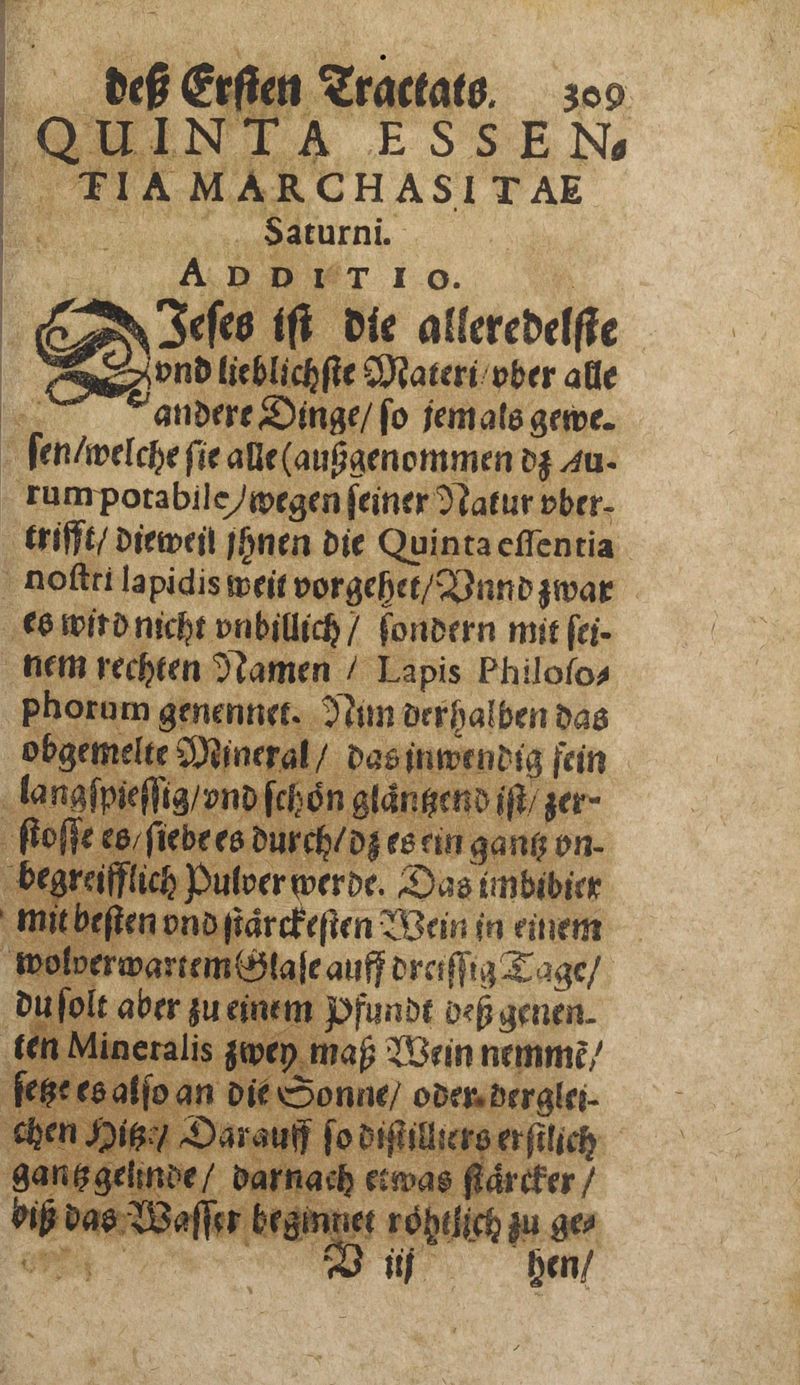 deß Ersten Tractats. 309
QUINTA ESSEN-
TIA MARCHASITAE
Saturni.
ADDITIO.
DJeses ist die alleredelste
vnd lieblichste Materi/vber alle
andere Dinge/ so jemals gewe-
sen/welche sie alle (außgenommen dz Au-
rum potabile)wegen seiner Natur vber-
trifft/ dieweil jhnen die Quinta essentia
nostri lapidis weit vorgehet/Vnnd zwar
es wird nicht vnbillich / sondern mit sei-
nem rechten Namen / Lapis Philoso-
phorum genennet. Nim derhalben das
obgemelte Mineral / das jnwendig fein
langspiessig/vnd schön gläntzend ist/ zer-
stosse es/siebe es durch/dz es ein gantz vn-
begreifflich Pulver werde. Das imbibier
mit besten vnd stärckesten Wein in einem
wolverwartem Glase auff dreissig Tage/
du solt aber zu einem Pfundt deß genen-
ten Mineralis zwey maß Wein nemmē/
setze es also an die Sonne/ oder derglei-
chen Hitz:/ Darauff so distilliers erstlich
gantz gelinde / darnach etwas stärcker /
biß das Wasser beginnet röhtlich zu ge-
V iij hen/